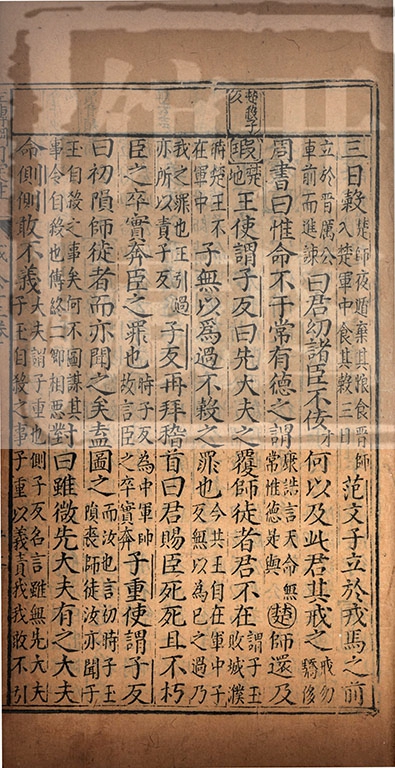 楚殺子反
三日穀楚師夜遁棄其粮食晉師入楚軍中食其穀三日范文子立於戎馬之前
立於晉厲公車前而進諫曰君幼諸臣不佞才何以及此君其戒之戒勿驕侈
周書曰惟命不于常有德之謂康誥言天命無常惟德是與楚師還及
瑕楚地王使謂子反曰先大夫之覆師徒者君不在謂子玉敗城濮
時楚王不在軍中子無以爲過不穀之罪也今共王自在軍中子反無以爲己之過乃
我之罪也王引過亦所以責子反子反再拜稽首曰君賜臣死死且不朽
臣之卒實奔臣之罪也時子反為中軍帥故言臣之卒實奔子重使謂子反
曰初隕師徒者而亦聞之矣盍圖之而汝也言初時子玉隕喪師徒汝亦聞子
玉自殺之事矣何不圖謀其事令自殺也傳終二卿相惡對曰雖微先大夫有之大夫
命側側敢不義大夫謂子重也側子反名言雖無先大夫子玉自殺之事子重以義責我我敢不引